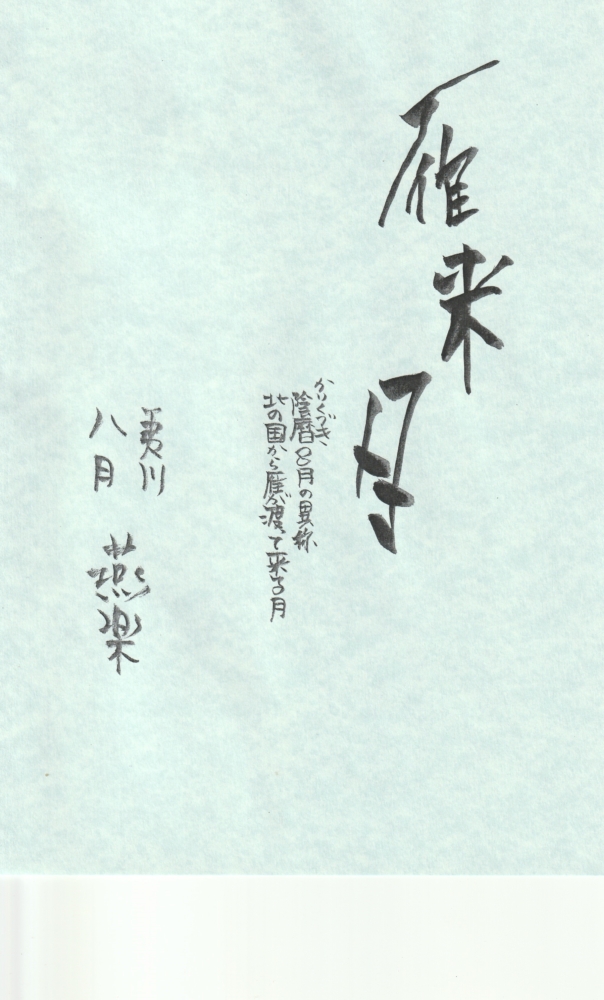 雁来月
かりくづき、
陰暦8月の異称
北の国から雁が渡って来る月
夷川
八月 燕楽